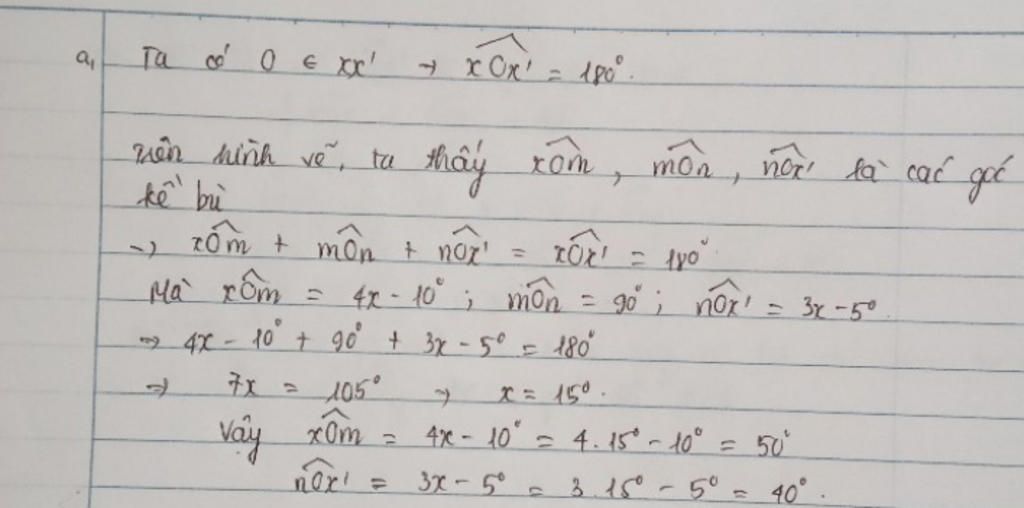 a, Ta có O ∈ xx' → \widehat{xOx'} = 180°.
Trên hình vẽ, ta thấy \widehat{xOm}, \widehat{mOn}, \widehat{nOx'} là các góc
kề bù
→ \widehat{xOm} + \widehat{mOn} + \widehat{nOx'} = \widehat{xOx'} = 180°
Mà \widehat{xOm} = 4x - 10° ; \widehat{mOn} = 90° ; \widehat{nOx'} = 3x - 5°.
→ 4x - 10° + 90° + 3x - 5° = 180°
→ 7x = 105° → x = 15°.
Vậy \widehat{xOm} = 4x - 10° = 4.15° - 10° = 50°
\widehat{nOx'} = 3x - 5° = 3.15° - 5° = 40°.